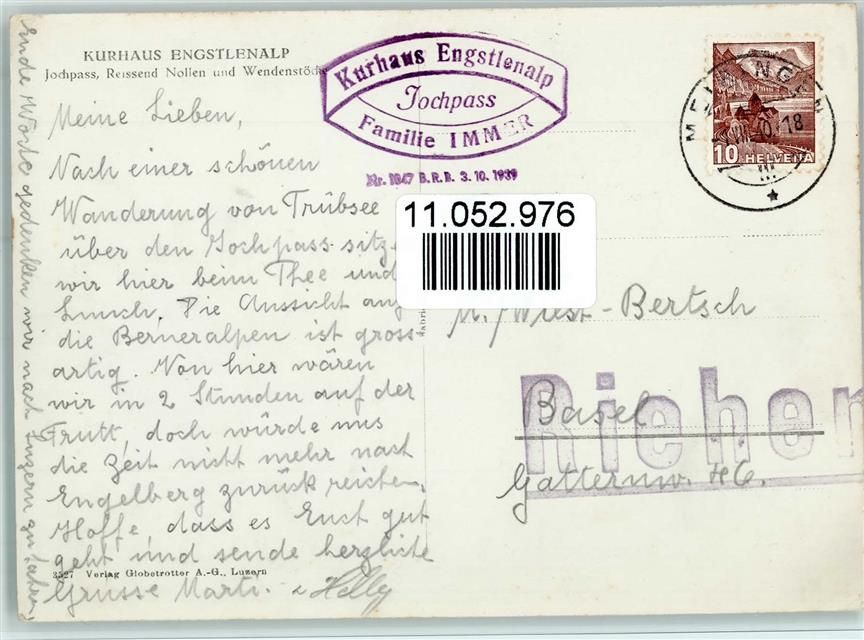 KURHAUS ENGSTLENALP
Jochpass, Reissend Nollen und Wendenstöcke
Kurhaus Engstlenalp
Jochpass
Familie IMMER
Nr. 1847 B.R.B. 3.10.1939
MEIRINGEN
18
10 HELVETIA
11.052.976
Meine Lieben,
Nach einer schönen
Wanderung von Trübsee
über den Jochpass sitze
wir hier beim Thee und
Lunch. Die Aussicht auf
die Berneralpen ist gross-
artig. Von hier wären
wir in 2 Stunden auf der
Frutt, doch würde uns
die Zeit nicht mehr nach
Engelberg zurück reichen.
Hoffe, dass es Euch gut
geht und sende herzliche
Grüsse Marti. Helly
Ende Woche gedenken wir nach Luzern zu fahren.
3527 Verlag Globetrotter A.-G., Luzern
Wüest-Bertsch
Basel
Riehen
Gatternw. 46.